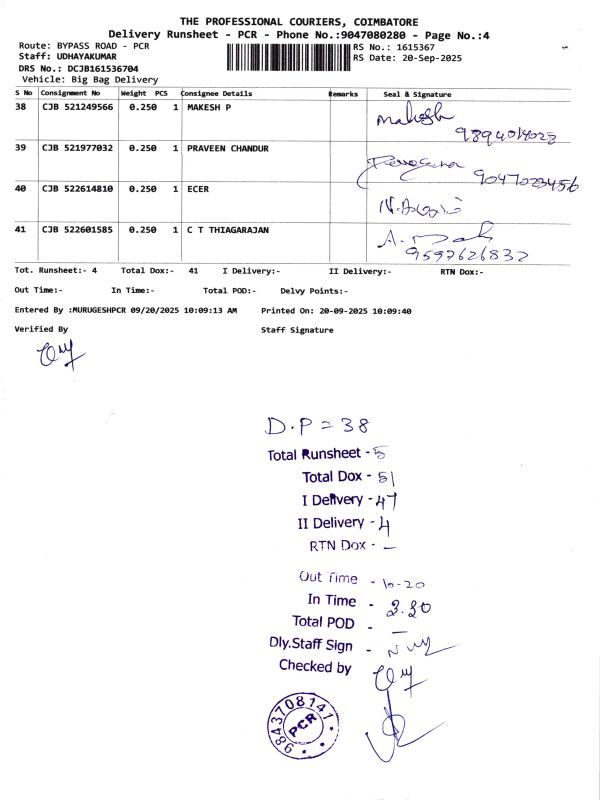 THE PROFESSIONAL COURIERS, COIMBATORE
Delivery Runsheet - PCR - Phone No.:9047080280 - Page No.:4
Route: BYPASS ROAD - PCR RS No.: 1615367
Staff: UDHAYAKUMAR RS Date: 20-Sep-2025
DRS No.: DCJB161536704
Vehicle: Big Bag Delivery
S No Consignment No Weight PCS Consignee Details Remarks Seal & Signature
38 CJB 521249566 0.250 1 MAKESH P Mahesh
39 CJB 521977032 0.250 1 PRAVEEN CHANDUR
9047023456
40 CJB 522614810 0.250 1 ECER
41 CJB 522601585 0.250 1 C T THIAGARAJAN
9597626832
Tot. Runsheet:- 4 Total Dox:- 41 I Delivery:- II Delivery:- RTN Dox:-
Out Time:- In Time:- Total POD:- Delvy Points:-
Entered By :MURUGESHPCR 09/20/2025 10:09:13 AM Printed On: 20-09-2025 10:09:40
Verified By Staff Signature
D.P = 38
Total Runsheet - 5
Total Dox - 51
I Delivery - 47
II Delivery - 4
RTN Dox - —
Out Time - 10-20
In Time -
Total POD - —
Dly.Staff Sign -
Checked by
9843708141
PCR